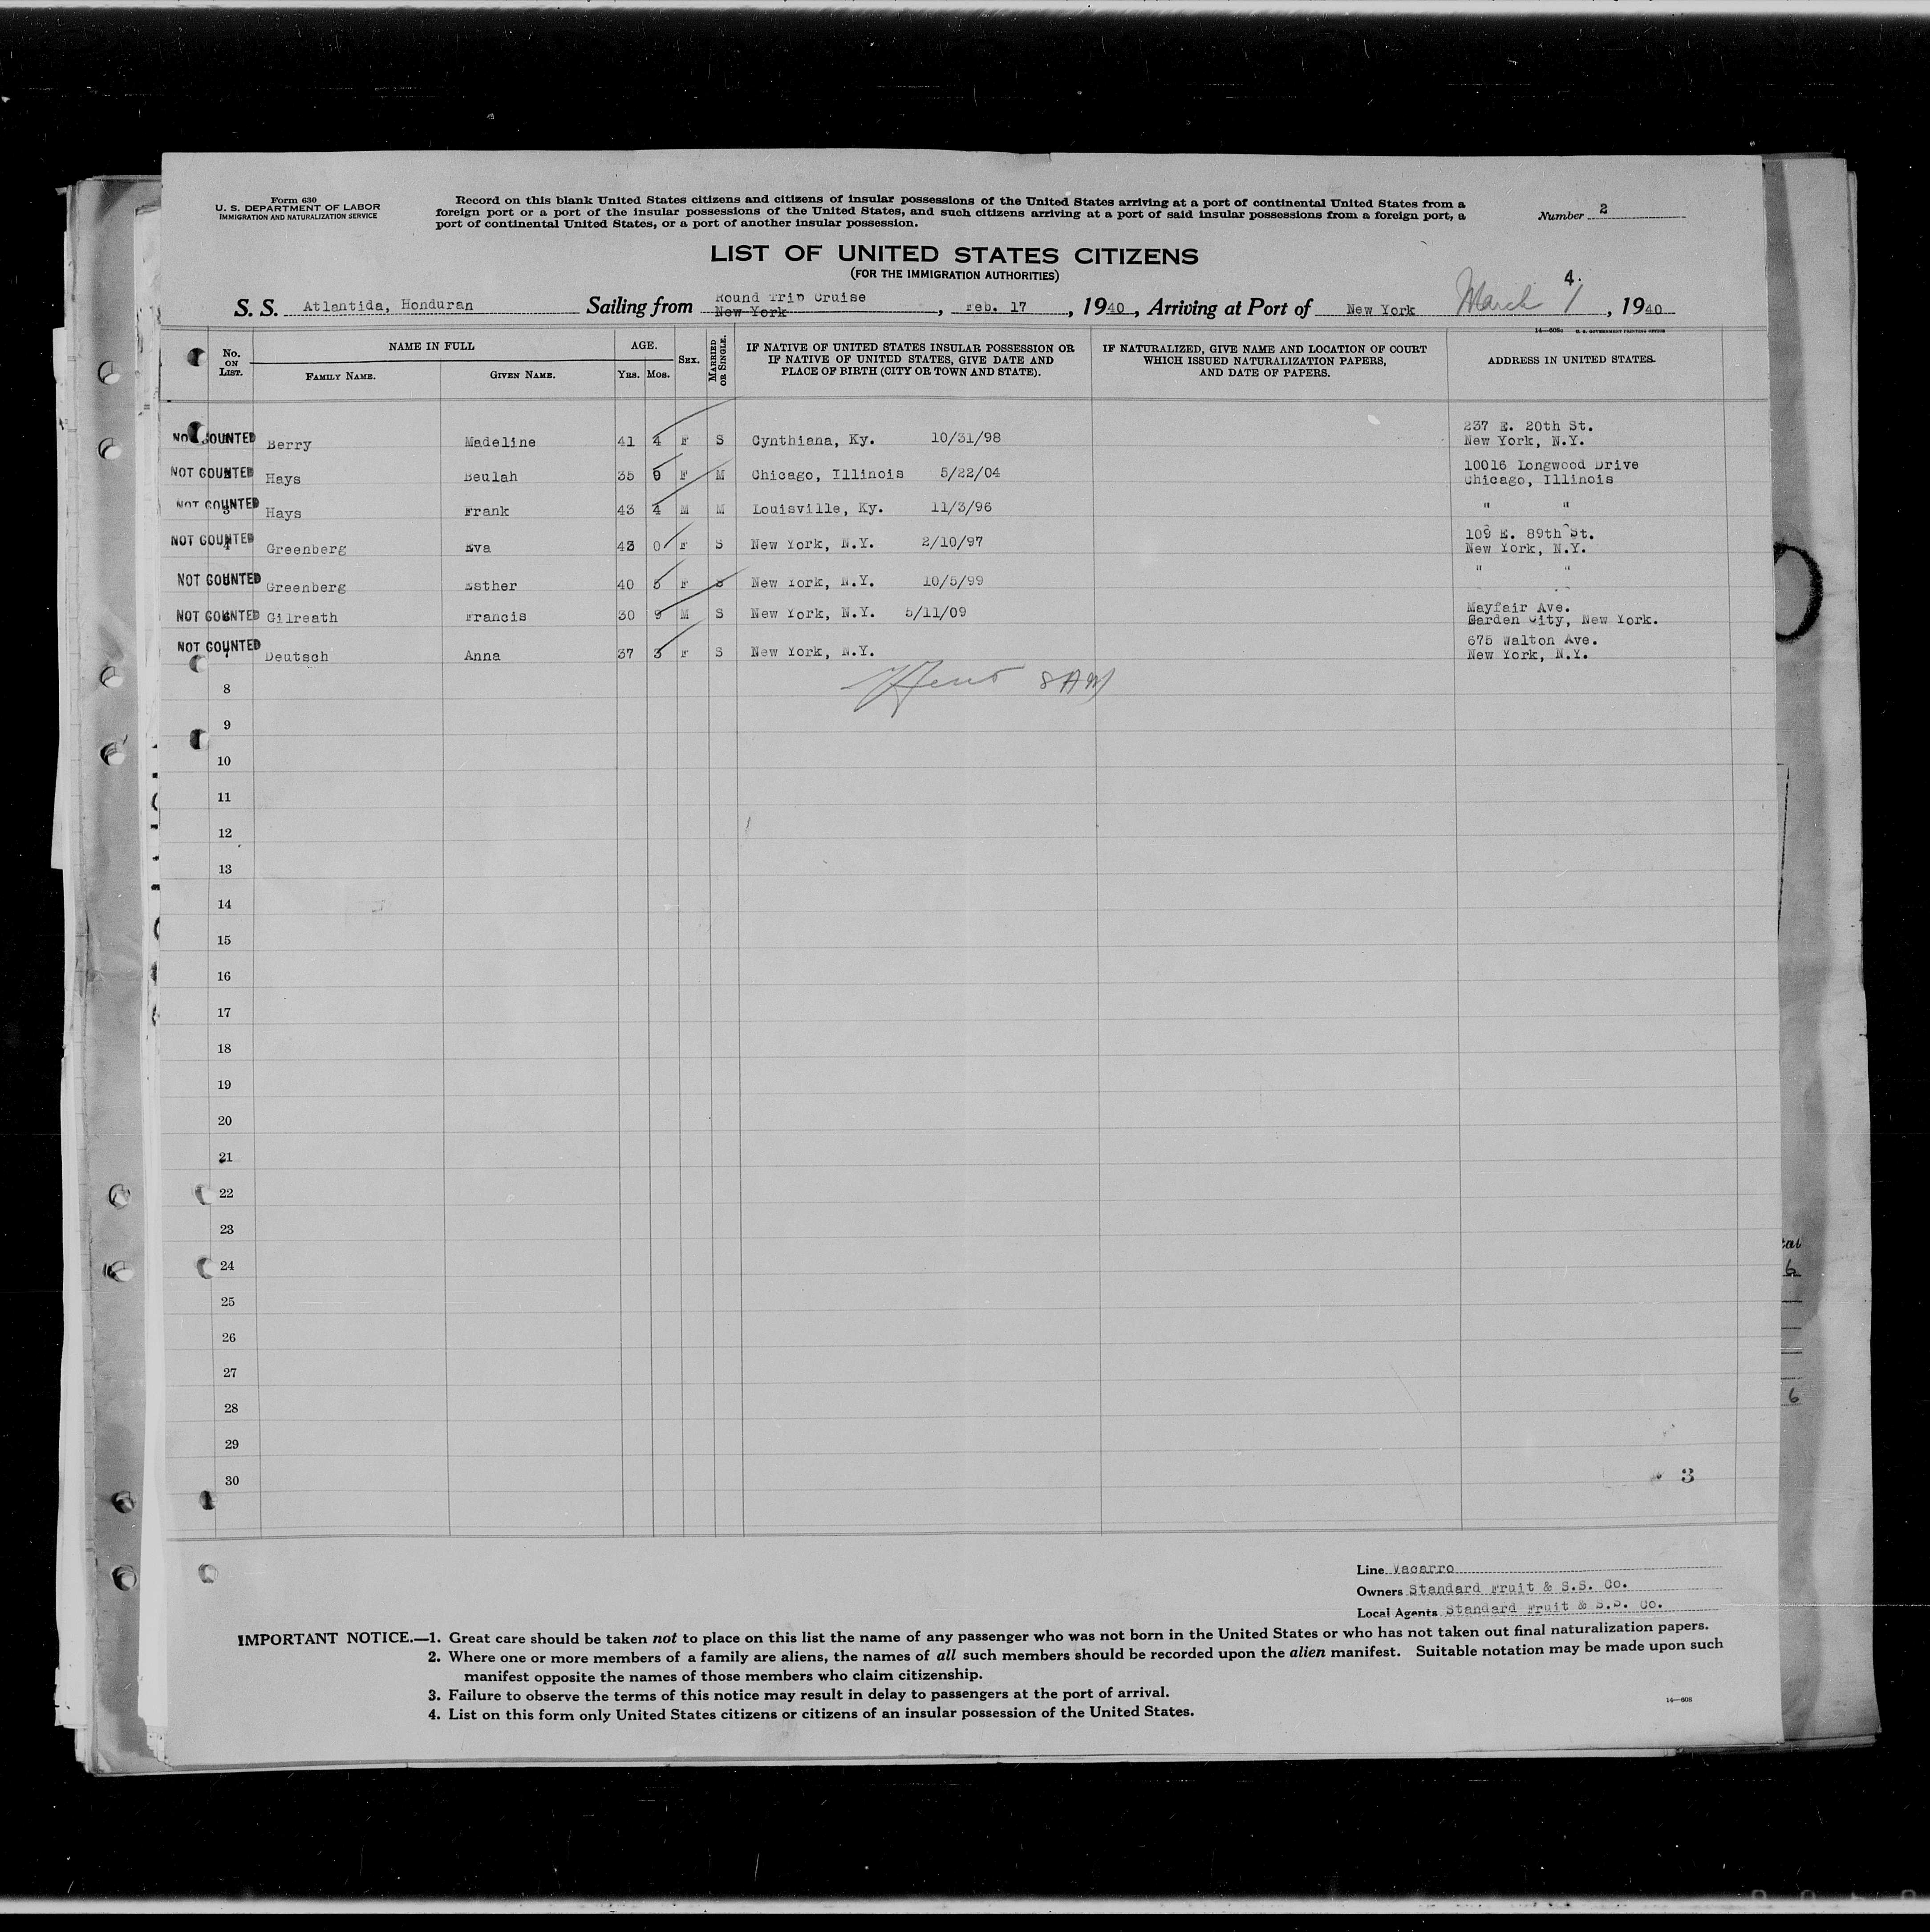 Form 630
U. S. DEPARTMENT OF LABOR
IMMIGRATION AND NATURALIZATION SERVICE
Record on this blank United States citizens and citizens of insular possessions of the United States arriving at a port of continental United States from a
foreign port or a port of the insular possessions of the United States, and such citizens arriving at a port of said insular possessions from a foreign port, a
port of continental United States, or a port of another insular possession.
Number 2
LIST OF UNITED STATES CITIZENS
(FOR THE IMMIGRATION AUTHORITIES)
4.
Round Trip Cruise
S. S. Atlantida, Honduran Sailing from New York, Feb. 17, 1940, Arriving at Port of New York March 1, 1940
14—608a U. S. GOVERNMENT PRINTING OFFICE
No. ON LIST. NAME IN FULL FAMILY NAME. GIVEN NAME. AGE. YRS. MOS. SEX. MARRIED OR SINGLE. IF NATIVE OF UNITED STATES INSULAR POSSESSION OR IF NATIVE OF UNITED STATES, GIVE DATE AND PLACE OF BIRTH (CITY OR TOWN AND STATE). IF NATURALIZED, GIVE NAME AND LOCATION OF COURT WHICH ISSUED NATURALIZATION PAPERS, AND DATE OF PAPERS. ADDRESS IN UNITED STATES.
NOT COUNTED Berry Madeline 41 4 F S Cynthiana, Ky. 10/31/98 237 E. 20th St. New York, N.Y.
NOT COUNTED Hays Beulah 35 9 F M Chicago, Illinois 5/22/04 10016 Longwood Drive Chicago, Illinois
NOT COUNTED 3 Hays Frank 43 4 M M Louisville, Ky. 11/3/96 " "
NOT COUNTED 4 Greenberg Eva 43 0 F S New York, N.Y. 2/10/97 109 E. 89th St. New York, N.Y.
NOT COUNTED Greenberg Esther 40 5 F S New York, N.Y. 10/5/99 " "
NOT COUNTED Gilreath Francis 30 9 M S New York, N.Y. 5/11/09 Mayfair Ave. Garden City, New York.
NOT COUNTED 7 Deutsch Anna 37 3 F S New York, N.Y. 675 Walton Ave. New York, N.Y.
8
9
10
11
12
13
14
15
16
17
18
19
20
21
22
23
24
25
26
27
28
29
30
3
Line Vacarro
Owners Standard Fruit & S.S. Co.
Local Agents Standard Fruit & S.S. Co.
IMPORTANT NOTICE.—1. Great care should be taken not to place on this list the name of any passenger who was not born in the United States or who has not taken out final naturalization papers.
2. Where one or more members of a family are aliens, the names of all such members should be recorded upon the alien manifest. Suitable notation may be made upon such
manifest opposite the names of those members who claim citizenship.
3. Failure to observe the terms of this notice may result in delay to passengers at the port of arrival.
4. List on this form only United States citizens or citizens of an insular possession of the United States.
14—608